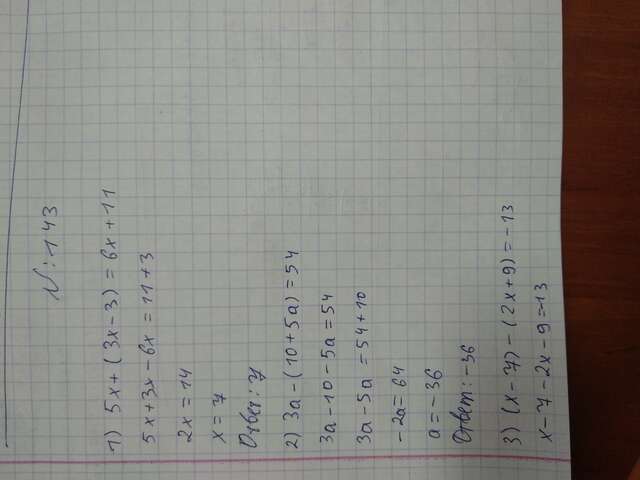 N: 143
1) 5x + (3x - 3) = 6x + 11
5x + 3x - 6x = 11 + 3
2x = 14
x = 7
Ответ: 7
2) 3a - (10 + 5a) = 54
3a - 10 - 5a = 54
3a - 5a = 54 + 10
-2a = 64
a = -36
Ответ: -36
3) (x - 7) - (2x + 9) = -13
x - 7 - 2x - 9 = -13